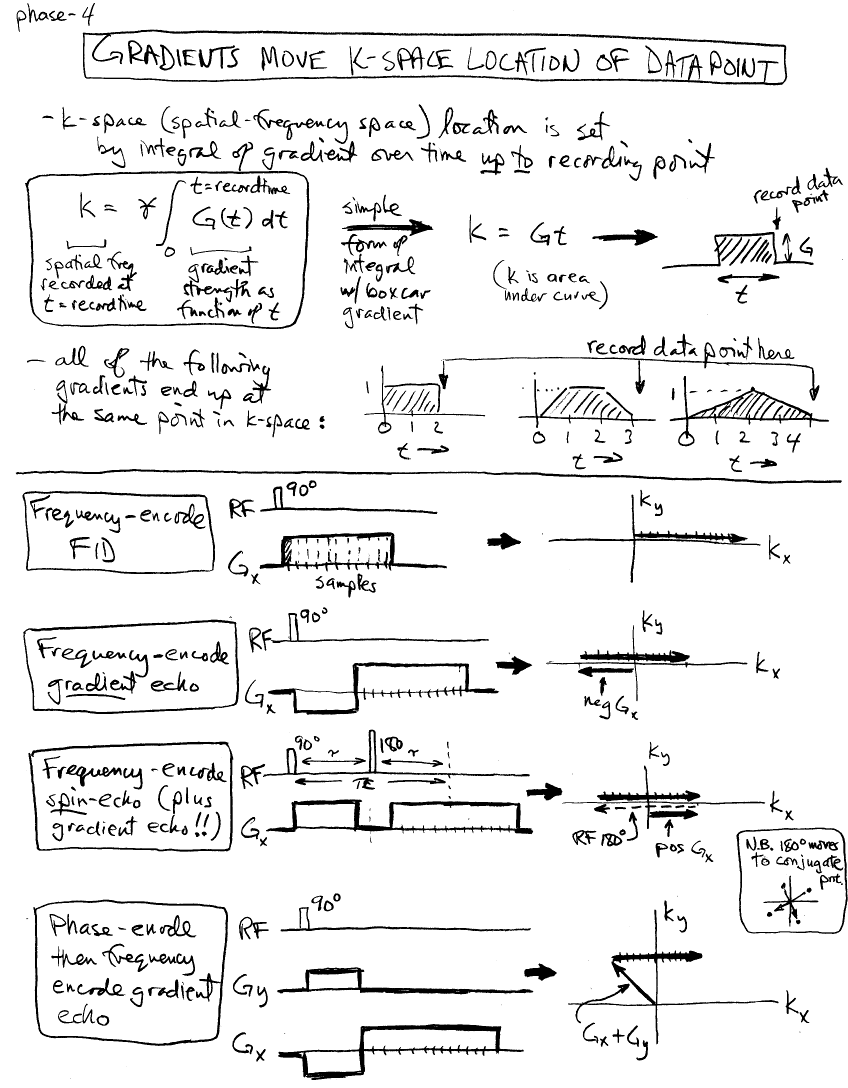 phase-4
GRADIENTS MOVE K-SPACE LOCATION OF DATA POINT
- k-space (spatial-frequency space) location is set
by integral of gradient over time up to recording point
k = γ ∫ G(t) dt
t=recordtime
0
spatial freq
recorded at
t=recordtime
gradient
strength as
function of t
simple
form of
integral
w/ boxcar
gradient
k = Gt
(k is area
under curve)
record data
point
G
t
- all of the following
gradients end up at
the same point in k-space:
record data point here
1
0 1 2
t →
0 1 2 3
t →
1
0 1 2 3 4
t →
Frequency-encode
FID
RF
90°
Gx
samples
ky
kx
Frequency-encode
gradient echo
RF
90°
Gx
ky
kx
neg Gx
Frequency-encode
spin-echo (plus
gradient echo!!)
RF
90° τ 180 τ
TE
Gx
ky
kx
RF 180°
pos Gx
N.B. 180° moves
to conjugate
pnt.
Phase-enode
then frequency
encode gradient
echo
RF
90°
Gy
Gx
ky
kx
Gx+Gy